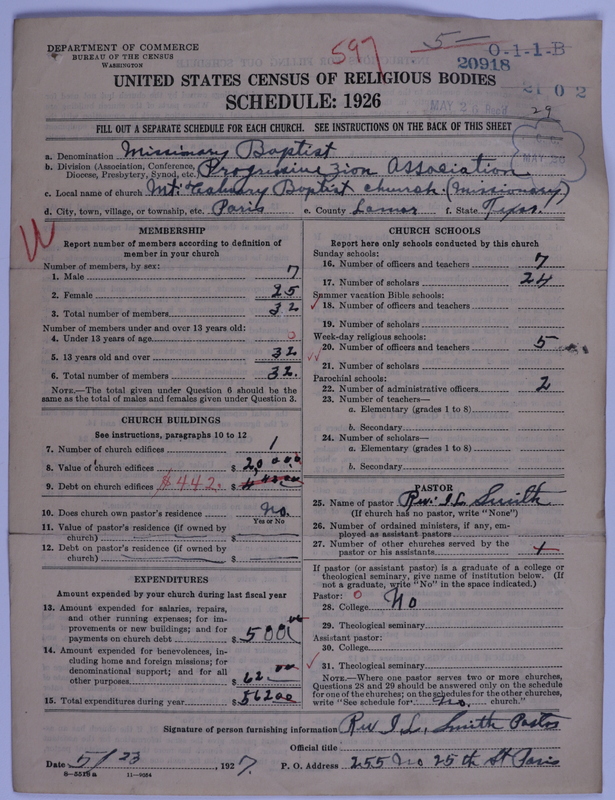 DEPARTMENT OF COMMERCE
BUREAU OF THE CENSUS
WASHINGTON
597
5
O-1-1-B
20918
2102
UNITED STATES CENSUS OF RELIGIOUS BODIES
SCHEDULE: 1926
MAY 26 Rec'd
29
FILL OUT A SEPARATE SCHEDULE FOR EACH CHURCH. SEE INSTRUCTIONS ON THE BACK OF THIS SHEET
a. Denomination Missionary Baptist
b. Division (Association, Conference, Diocese, Presbytery, Synod, etc.) Progressive Zion Association
c. Local name of church Mt. Calvary Baptist church (Missionary)
d. City, town, village, or township, etc. Paris e. County Lamar f. State Texas.
W
MEMBERSHIP
Report number of members according to definition of
member in your church
Number of members, by sex:
1. Male 7
2. Female 25
3. Total number of members 32
Number of members under and over 13 years old:
4. Under 13 years of age 0
5. 13 years old and over 32
6. Total number of members 32.
NOTE.—The total given under Question 6 should be the
same as the total of males and females given under Question 3.
CHURCH BUILDINGS
See instructions, paragraphs 10 to 12
7. Number of church edifices 1
8. Value of church edifices $
9. Debt on church edifices $442. $
10. Does church own pastor's residence no.
Yes or No
11. Value of pastor's residence (if owned by
church) $
12. Debt on pastor's residence (if owned by
church) $
EXPENDITURES
Amount expended by your church during last fiscal year
13. Amount expended for salaries, repairs,
and other running expenses; for im-
provements or new buildings; and for
payments on church debt $ 500 00
14. Amount expended for benevolences, in-
cluding home and foreign missions; for
denominational support; and for all
other purposes $ 62. 00
15. Total expenditures during year $ 562 00
CHURCH SCHOOLS
Report here only schools conducted by this church
Sunday schools:
16. Number of officers and teachers 7
17. Number of scholars 24
Summer vacation Bible schools:
18. Number of officers and teachers
19. Number of scholars
Week-day religious schools:
20. Number of officers and teachers 5
21. Number of scholars
Parochial schools:
22. Number of administrative officers 2
23. Number of teachers—
a. Elementary (grades 1 to 8)
b. Secondary
24. Number of scholars—
a. Elementary (grades 1 to 8)
b. Secondary
PASTOR
25. Name of pastor Rev. I. L. Smith
(If church has no pastor, write "None")
26. Number of ordained ministers, if any, em-
ployed as assistant pastors
27. Number of other churches served by the
pastor or his assistants
If pastor (or assistant pastor) is a graduate of a college or
theological seminary, give name of institution below. (If
not a graduate, write "No" in the space indicated.)
Pastor: 0
28. College No
29. Theological seminary
Assistant pastor:
30. College
31. Theological seminary
NOTE.—Where one pastor serves two or more churches,
Questions 28 and 29 should be answered only on the schedule
for one of the churches; on the schedules for the other churches,
write "See schedule for no. church."
Signature of person furnishing information Rev I. L. Smith Pastor
Official title
Date 5/23, 1927. P. O. Address 255 No 25th St Paris
8-5518 a 11-9054